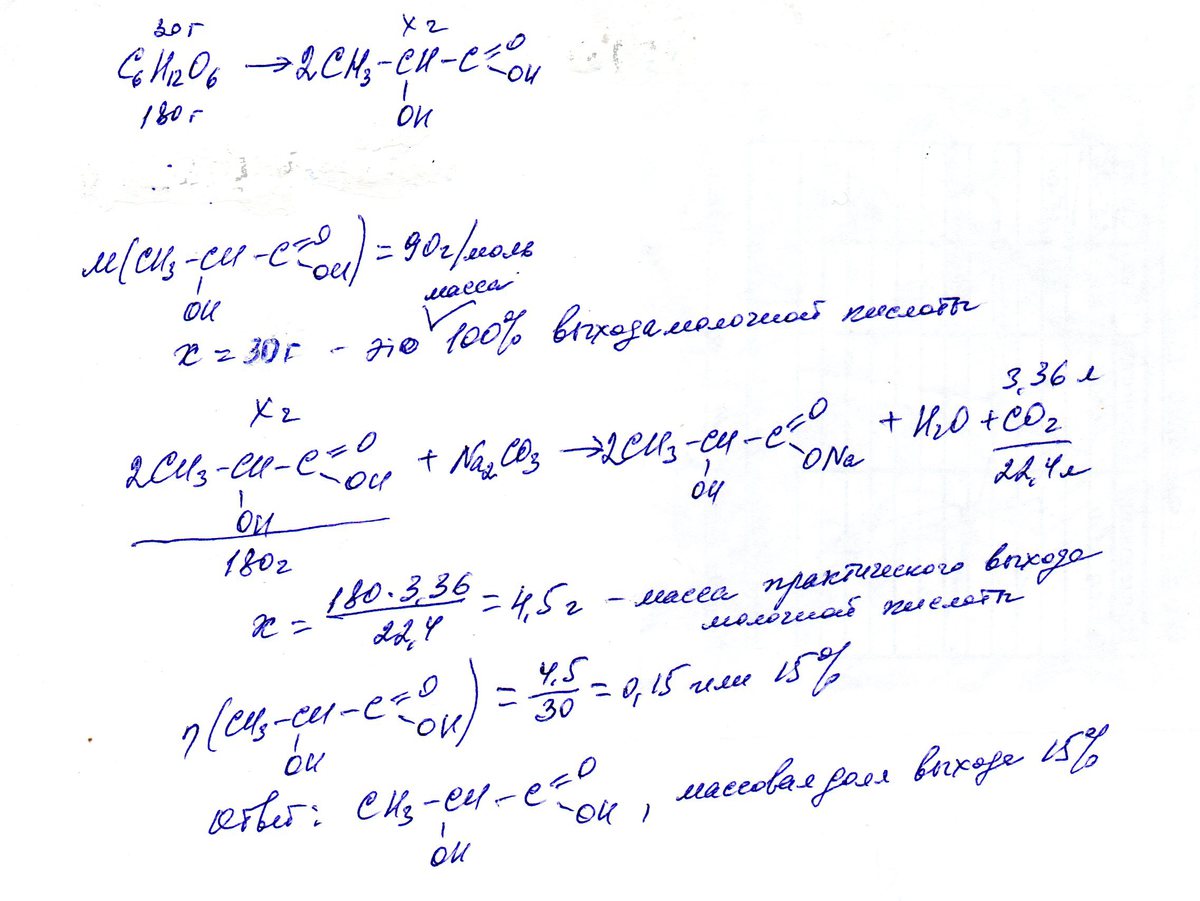 30 г х г
C₆H₁₂O₆ → 2CH₃-CH-C=O
-OH
180 г OH
M(CH₃-CH-C=O-OH) = 90 г/моль
OH масса
x = 30 г - это 100% выхода молочной кислоты
х г 3,36 л
2CH₃-CH-C=O-OH + Na₂CO₃ → 2CH₃-CH-C=O-ONa + H₂O + CO₂
OH OH 22,4 л
180 г
x = 180·3,36/22,4 = 4,5 г - масса практического выхода
молочной кислоты
η(CH₃-CH-C=O-OH) = 4,5/30 = 0,15 или 15%
OH
Ответ: CH₃-CH-C=O-OH, массовая доля выхода 15%
OH